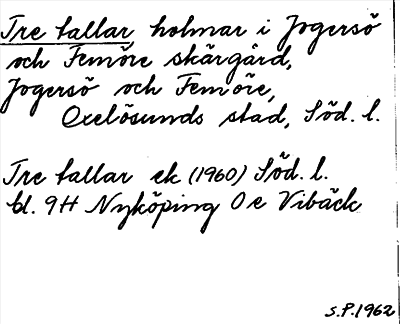 Tre tallar holmar i Jogersö
och Femöre skärgård,
Jogersö och Femöre,
Oxelösunds stad, Söd. l.
Tre tallar ek (1960) Söd. l.
bl. 9H Nyköping 0e Vibäck
S.P.1962